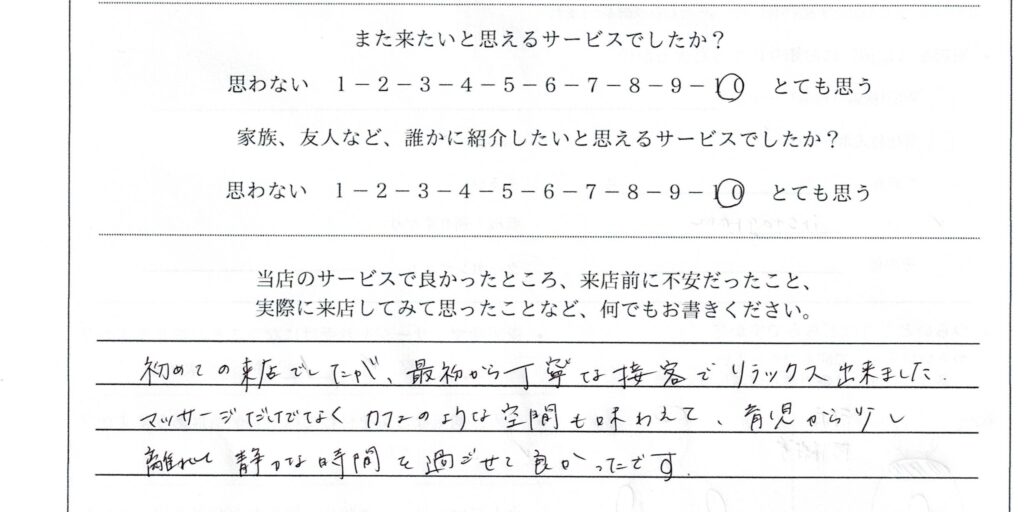 また来たいと思えるサービスでしたか？
思わない 1－2－3－4－5－6－7－8－9－10 とても思う
家族、友人など、誰かに紹介したいと思えるサービスでしたか？
思わない 1－2－3－4－5－6－7－8－9－10 とても思う
当店のサービスで良かったところ、来店前に不安だったこと、
実際に来店してみて思ったことなど、何でもお書きください。
初めての来店でしたが、最初から丁寧な接客でリラックス出来ました.
マッサージだけでなくカフェのような空間も味わえて、育児から少し
離れて静かな時間を過ごせて良かったです.